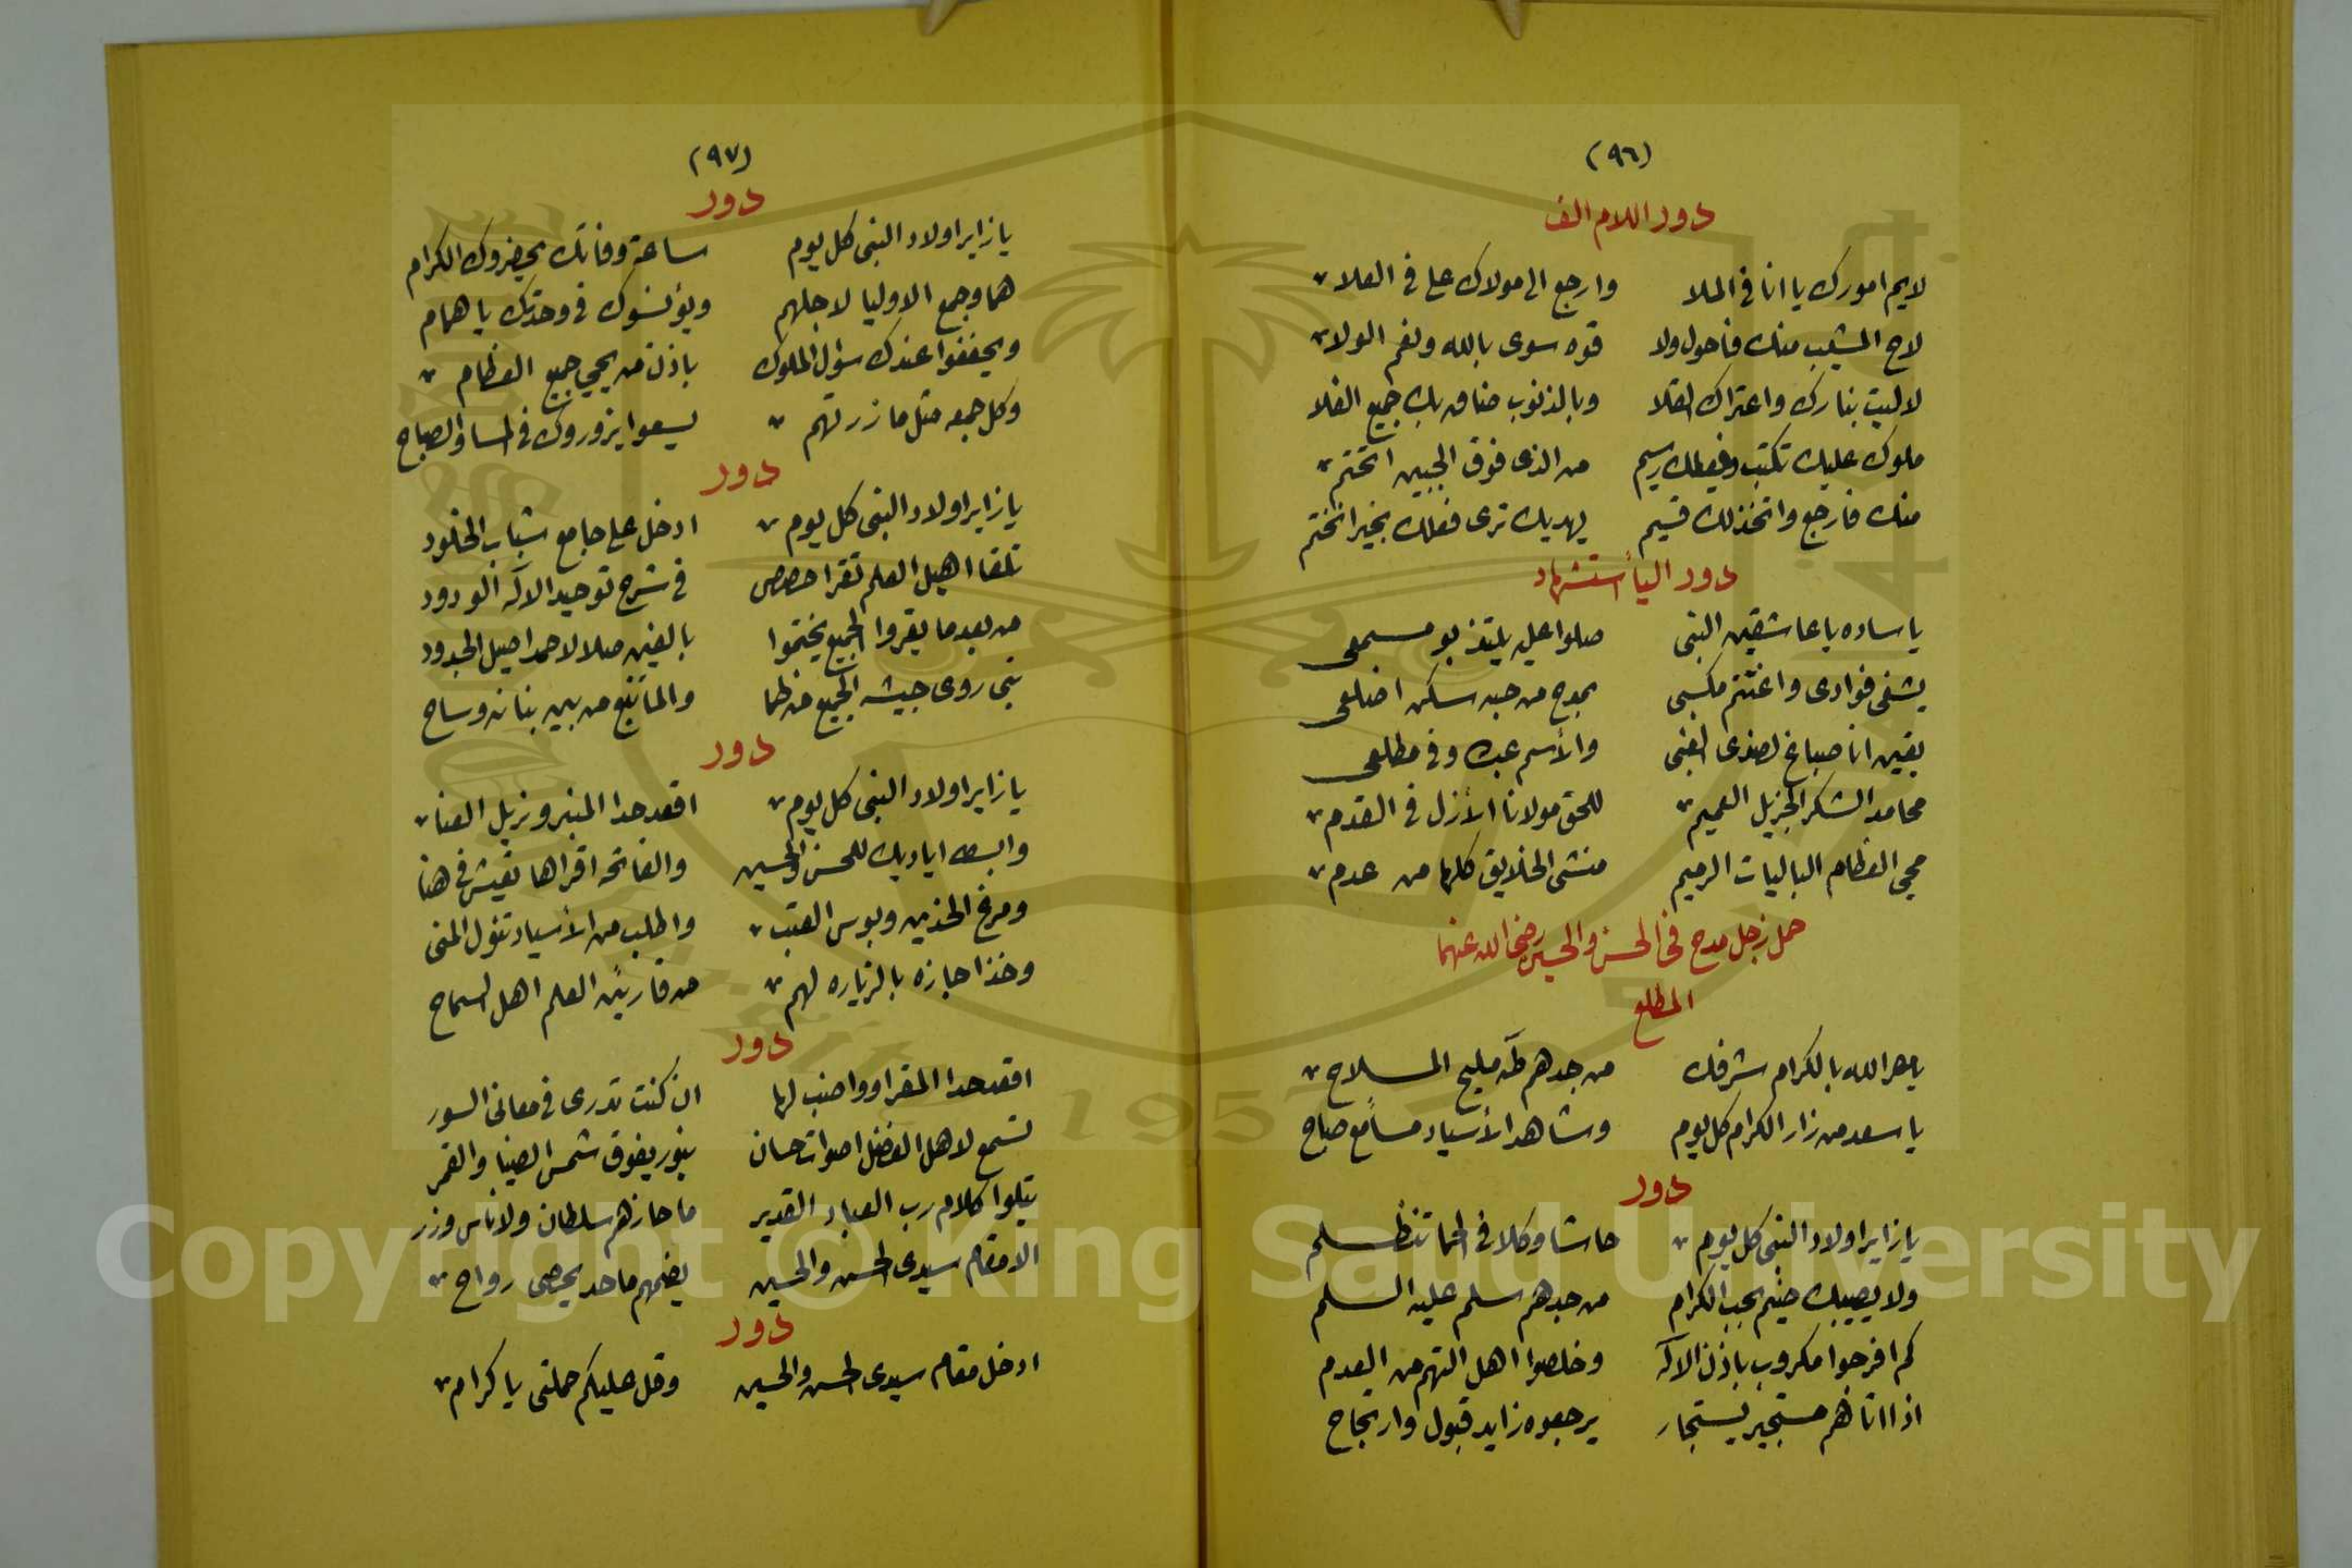 (٩٦)
دور اللام الف
لايم امورك يا انا في الملا وارجع الى مولاك على في العلا
لاح المشيب منك فاحول ولا قوه سوى بالله ونعم الولا
لا ليت بنارك واعتراك القلا وبالذنوب ضاق بك جميع الفلا
ملوك عليك تكتب من الذي فوق الجبين اتختم
منك فارجع واتخذ لك قسيم يهديك ترى فعلك بخير انختم
دور اليا استشهاد
يا ساده يا عاشقين النبي صلوا عليه يلتذ بو مسمعي
يشفى فوادي واغتنم مكسبي بمدح من حبه سكن اضلعي
يقين انا صباغ لصغرى الغبي والأسم عبده وفي مطلعي
محامد الشكر الجزيل العميم للحق مولانا الأزل في القدم
محيي العظام الباليات الرميم منشى الخلايق كلها من عدم
حمل زجل مدح في الحسن والحسين رضي الله عنهما
المطلع
يا مصر الله بالكرام شرفك من جدهم طه مليح الملاح
يا سعد من زار الكرام كل يوم وشاهد الأسياد مسا مع صباح
دور
يا زاير اولاد النبي كل يوم حاشا وكلا في الحما تنظلم
ولا يصيبك ضيم بحب الكرام من جدهم سلم عليه السلم
كم افرحوا مكروب باذن الاله وخلصوا اهل التهم من العدم
اذا اتاهم مستجير يستجار يرجعوه زايد قبول وارتجاح
(٩٧)
دور
يا زاير اولاد النبي كل يوم ساعة وفاتك يحضروك الكرام
هما وجمع الاوليا لاجلهم ويؤنسوك في وحدتك يا همام
ويخففوا عندك سؤل الملوك باذن من يحيي جميع العظام
وكل جمعه مثل ما زرتهم يسعوا يزوروك في المسا والصباح
دور
يا زاير اولاد النبي كل يوم ادخل على جامع شباب الخلود
تلقا اهيل العلم تقرا حصص في شرح توحيد الاله الودود
من بعد ما يقروا الجميع يختموا بالفين صلا لاحمد اصيل الجدود
نبي روى جيشه الجميع من ظما والما نبع من بين بنانه وساح
دور
يا زاير اولاد النبي كل يوم اقعد حدا المنبر وزيل العنا
وابسط اياديك للحسن والحسين والفاتحه اقراها تعيش في هنا
ومرغ الخدين وبوس العتب واطلب من الأسياد تنول المنى
وخذ اجازه بالزياره لهم من قاريين العلم اهل السماح
دور
اقعد حدا المقرا وواضب لها ان كنت تدرى في معاني السور
تسمع لاهل الفضل اصوات حسان بنور يفوق شمس الضيا والقمر
يتلوا كلام رب العباد القدير ما حازهم سلطان ولا ناس وزر
الا مقام سيدي الحسن والحسين يضمهم ما حد يحصى رواح
دور
ادخل مقام سيدي الحسن والحسين وقل عليكم حملتي يا كرام
Copyright © King Saud University
1957